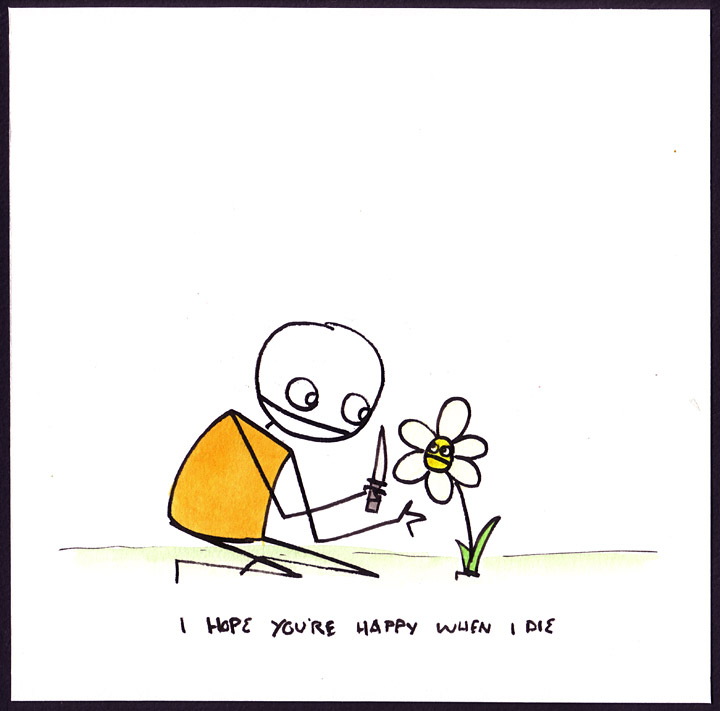 I HOPE YOU'RE HAPPY WHEN I DIE